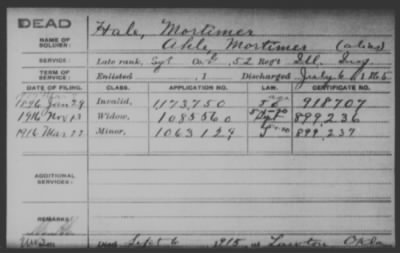 DEAD
NAME OF SOLDIER: Hale, Mortimer
Ahle, Mortimer (alias)
SERVICE: Late rank, Sgt Co. 52 Reg't Ill. Inf.
TERM OF SERVICE: Enlisted , 1 Discharged July 6, 1865
DATE OF FILING. CLASS. APPLICATION NO. LAW. CERTIFICATE NO.
1896 Jan 29 Invalid, 1173,750 918707
1916 Nov 13 Widow, 1083560 899,236
1916 Mar 22 Minor, 1063129 899,237
ADDITIONAL SERVICES:
REMARKS:
Died Sept 6 1915, at Lawton Okla